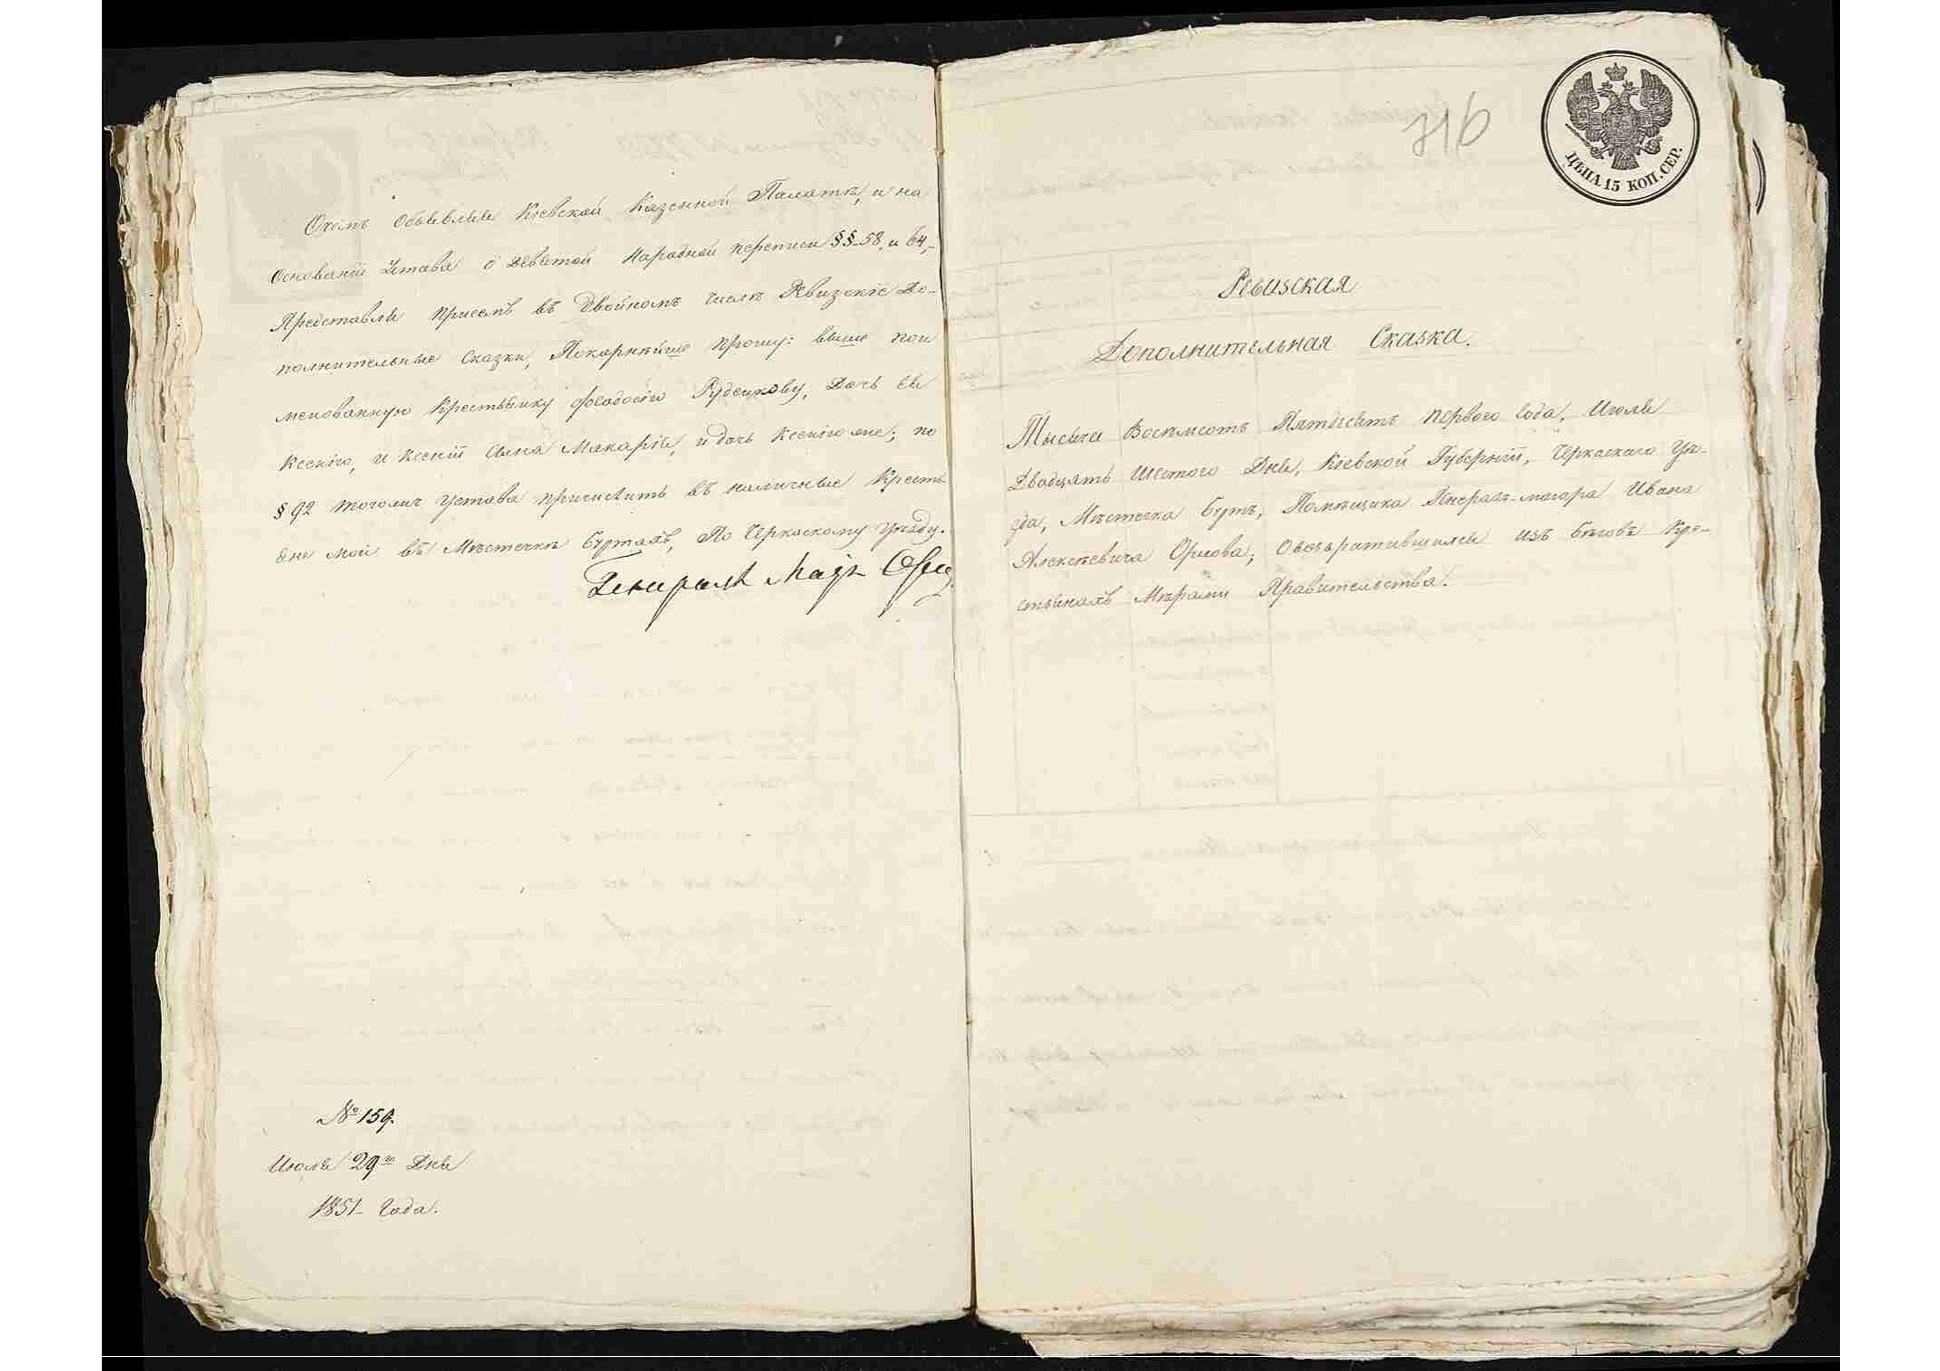 Охомъ Объявляя Кіевской Казенной Палатѣ, и на
Основаніи Устава о Девятой Народной переписи §§ 58, и 64,
Представляя присемъ въ двойномъ числѣ Ревизскіе До-
полнительные Сказки, Покорнѣйше прошу: выше пои
менованную Крестьянку Феодосію Руденкову, Дочь ея
Ксенію, и Ксеніи Сына Макарія, и дочь Ксенію же; по
§ 92 тогожъ Устава причислить въ наличные Крестья
не мои въ Мѣстечкѣ Буртахъ, По Черкаскому Уѣзду.
Генералъ Маіоръ
№ 159.
Июля 29го Дня
1851 Года.
716
ЦѢНА 15 КОП. СЕР.
Ревизская
Дополнительная Сказка.
Тысяча Восемьсотъ Пятдесятъ первого Года, Июля
Двадцять Шестого Дня, Кіевской Губерніи, Черкаскаго Уѣ-
зда, Мѣстечка Буртъ, Помѣщика Генералъ-маіора Ивана
Алексѣевича Орлова; О возвратившихся изъ бѣговъ Кре-
стьянахъ Мѣрами Правительства.